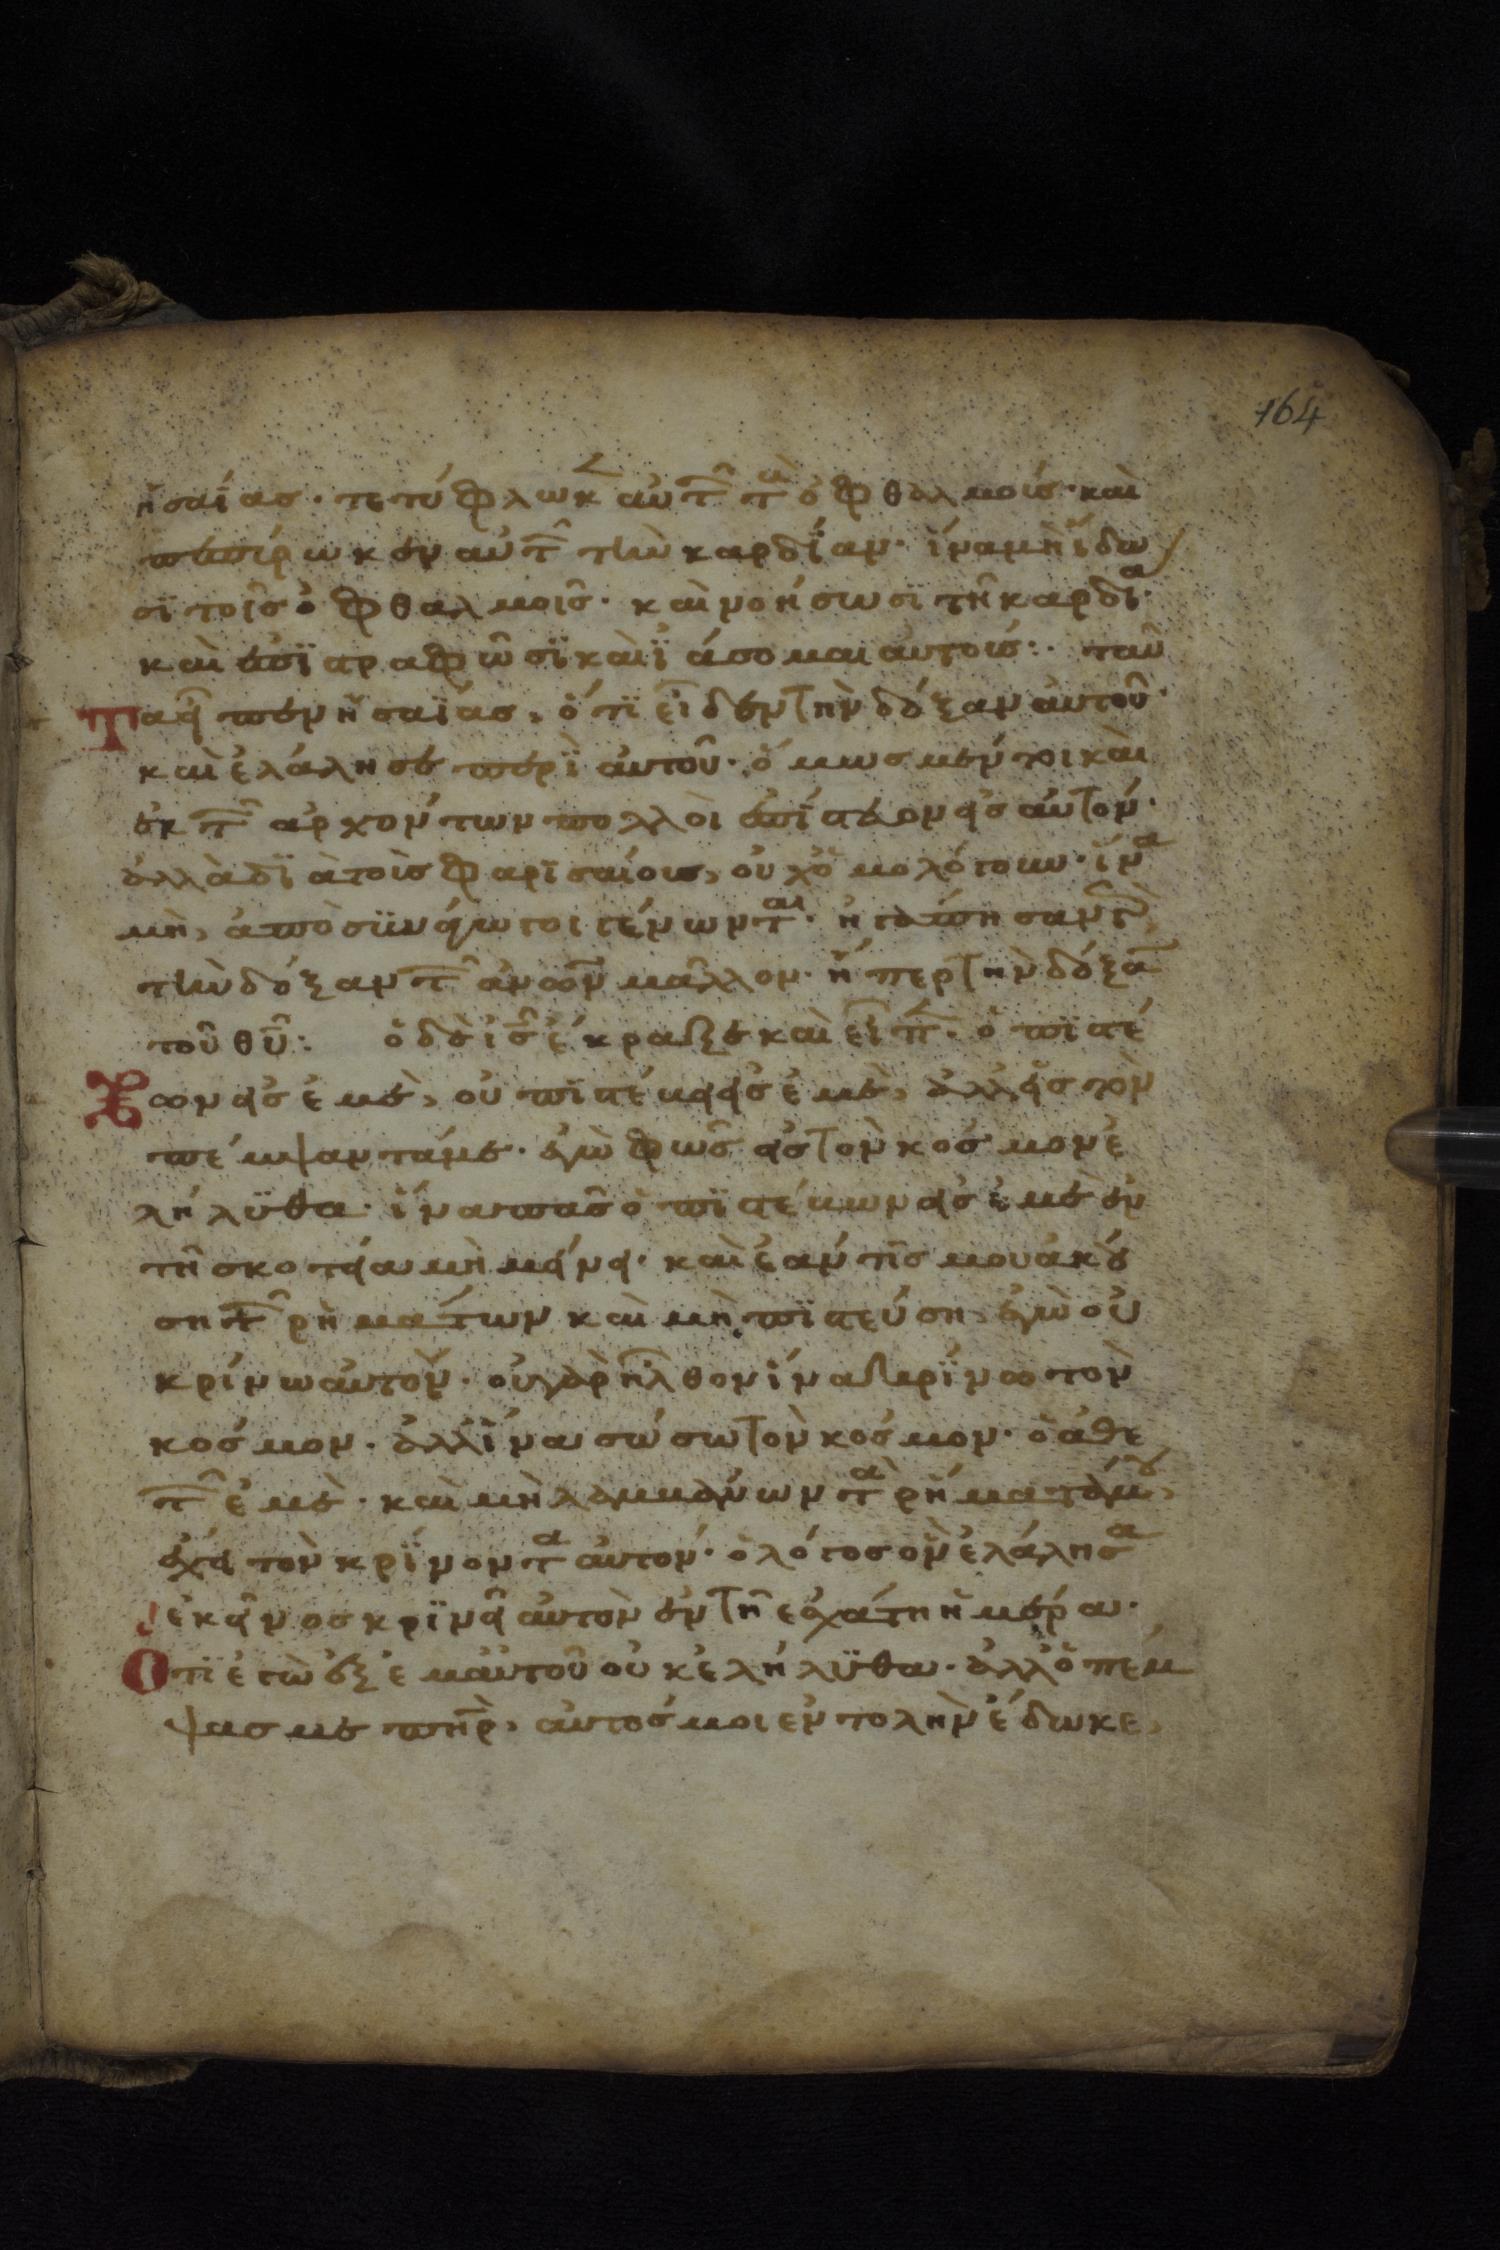 164
ἠσαΐας· τετύφλωκ αὐτ τ ὀφθαλμούς· καὶ
πεπώρωκεν αὐτ τὴν καρδίαν· ἵνα μὴ ἴδω
σϊ τοῖς ὀφθαλμοῖς· καὶ νοήσωσϊ τῆ καρδία·
καὶ ἐπϊστραφῶσϊ καὶ ϊάσομαι αὐτούς:· ταῦ
Τα εἶπεν ἠσαΐας, ὅτϊ εἶδεν τὴν δόξαν αὐτοῦ·
καὶ ἐλάλησε περϊ αὐτοῦ· ὅμως μέντοι καὶ
ἐκ τ ἀρχόντων πολλοὶ ἐπίστευον εἰς αὐτόν·
ἀλλὰ δϊὰ τοὺς φαρϊσαίους, οὐχ ὁμολόγουν· ἵνα
μὴ, ἀποσϋνάγωγοι γένωνται· ἠγάπησαν γ,
τὴν δόξαν τ ἀνων μᾶλλον· ἤπερ τὴν δόξα
τοῦ θῦ: ὁ δὲ ις ἔκραξε καὶ εἶπ· ὁ πϊστέ
ων εἰς ἐμὲ, οὐ πϊστεύει εἰς ἐμὲ, ἀλλ εἰς τὸν
πέμψαντά με· ἐγὼ φῶς εἰς τὸν κόσμον ἐ
λήλϋθα· ἵνα πᾶς ὁ πϊστεύων εἰς ἐμὲ ἐν
τῆ σκοτεία μὴ μείνει· καὶ ἐάν τϊς μου ἀκού
ση τ ρημάτων καὶ μὴ πϊστεύση, ἐγὼ οὐ
κρίνω αὐτόν· οὐ γὰρ ἦλθον ἵνα κρϊνω τὸν
κόσμον· ἀλλ ἵνα σώσω τὸν κόσμον· ὁ ἀθε
τ ἐμὲ· καὶ μὴ λαμμάνων τα ρήματά μου,
ἔχει τὸν κρϊνοντα αὐτόν· ὁ λόγος ὃν ἐλάλησα
ἐκεῖνος κρϊνεῖ αὐτὸν ἐν τῆ ἐσχάτη ἡμέρα·
Οτϊ ἐγὼ ἐξ ἐμαυτοῦ οὐκ ἐλήλϋθα· ἀλλ ὁ πέμ
ψας με πηρ, αὐτός μοι ἐντολὴν ἔδωκε,